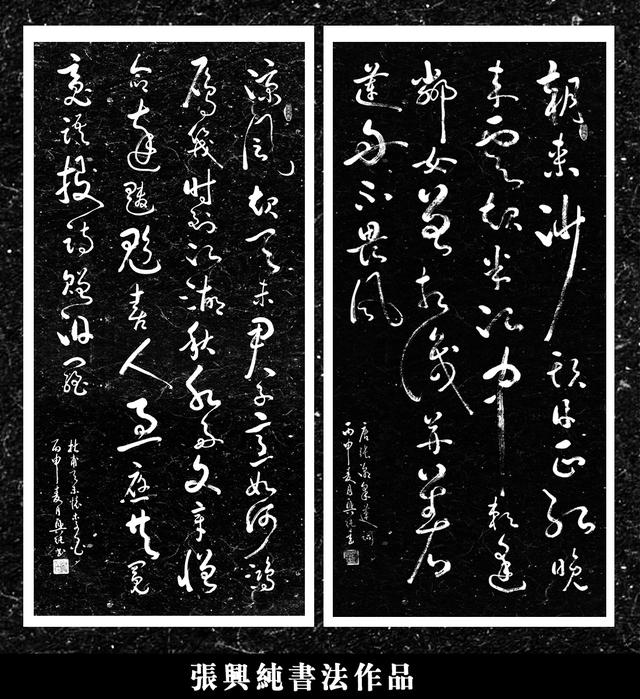 朝來沙頭日正紅晚
來雲起半江中賴逢
鄰女曾相識并著
蓮舟不畏風
唐張潮采蓮詞
丙申夏月興純書
涼風起天末君子意如何鴻
雁幾時到江湖秋水多文章憎
命達魑魅喜人過應共冤
魂語投詩贈汨羅
杜甫天末懷李白
丙申夏月興純書
張興純書法作品